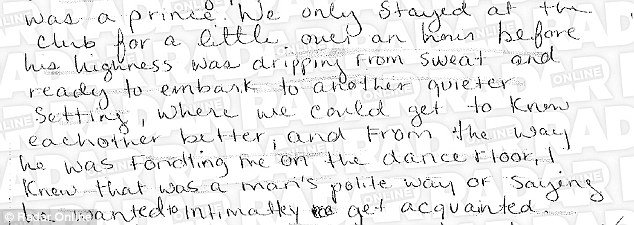 was a prince. We only stayed at the
club for a little over an hour before
his highness was dripping from sweat and
ready to embark to another quieter
setting, where we could get to know
eachother better, and from the way
he was fondling me on the dance floor, I
knew that was a man's polite way of saying
he wanted to intimatley get acquainted.
© Radar Online
RADAR ONLINE